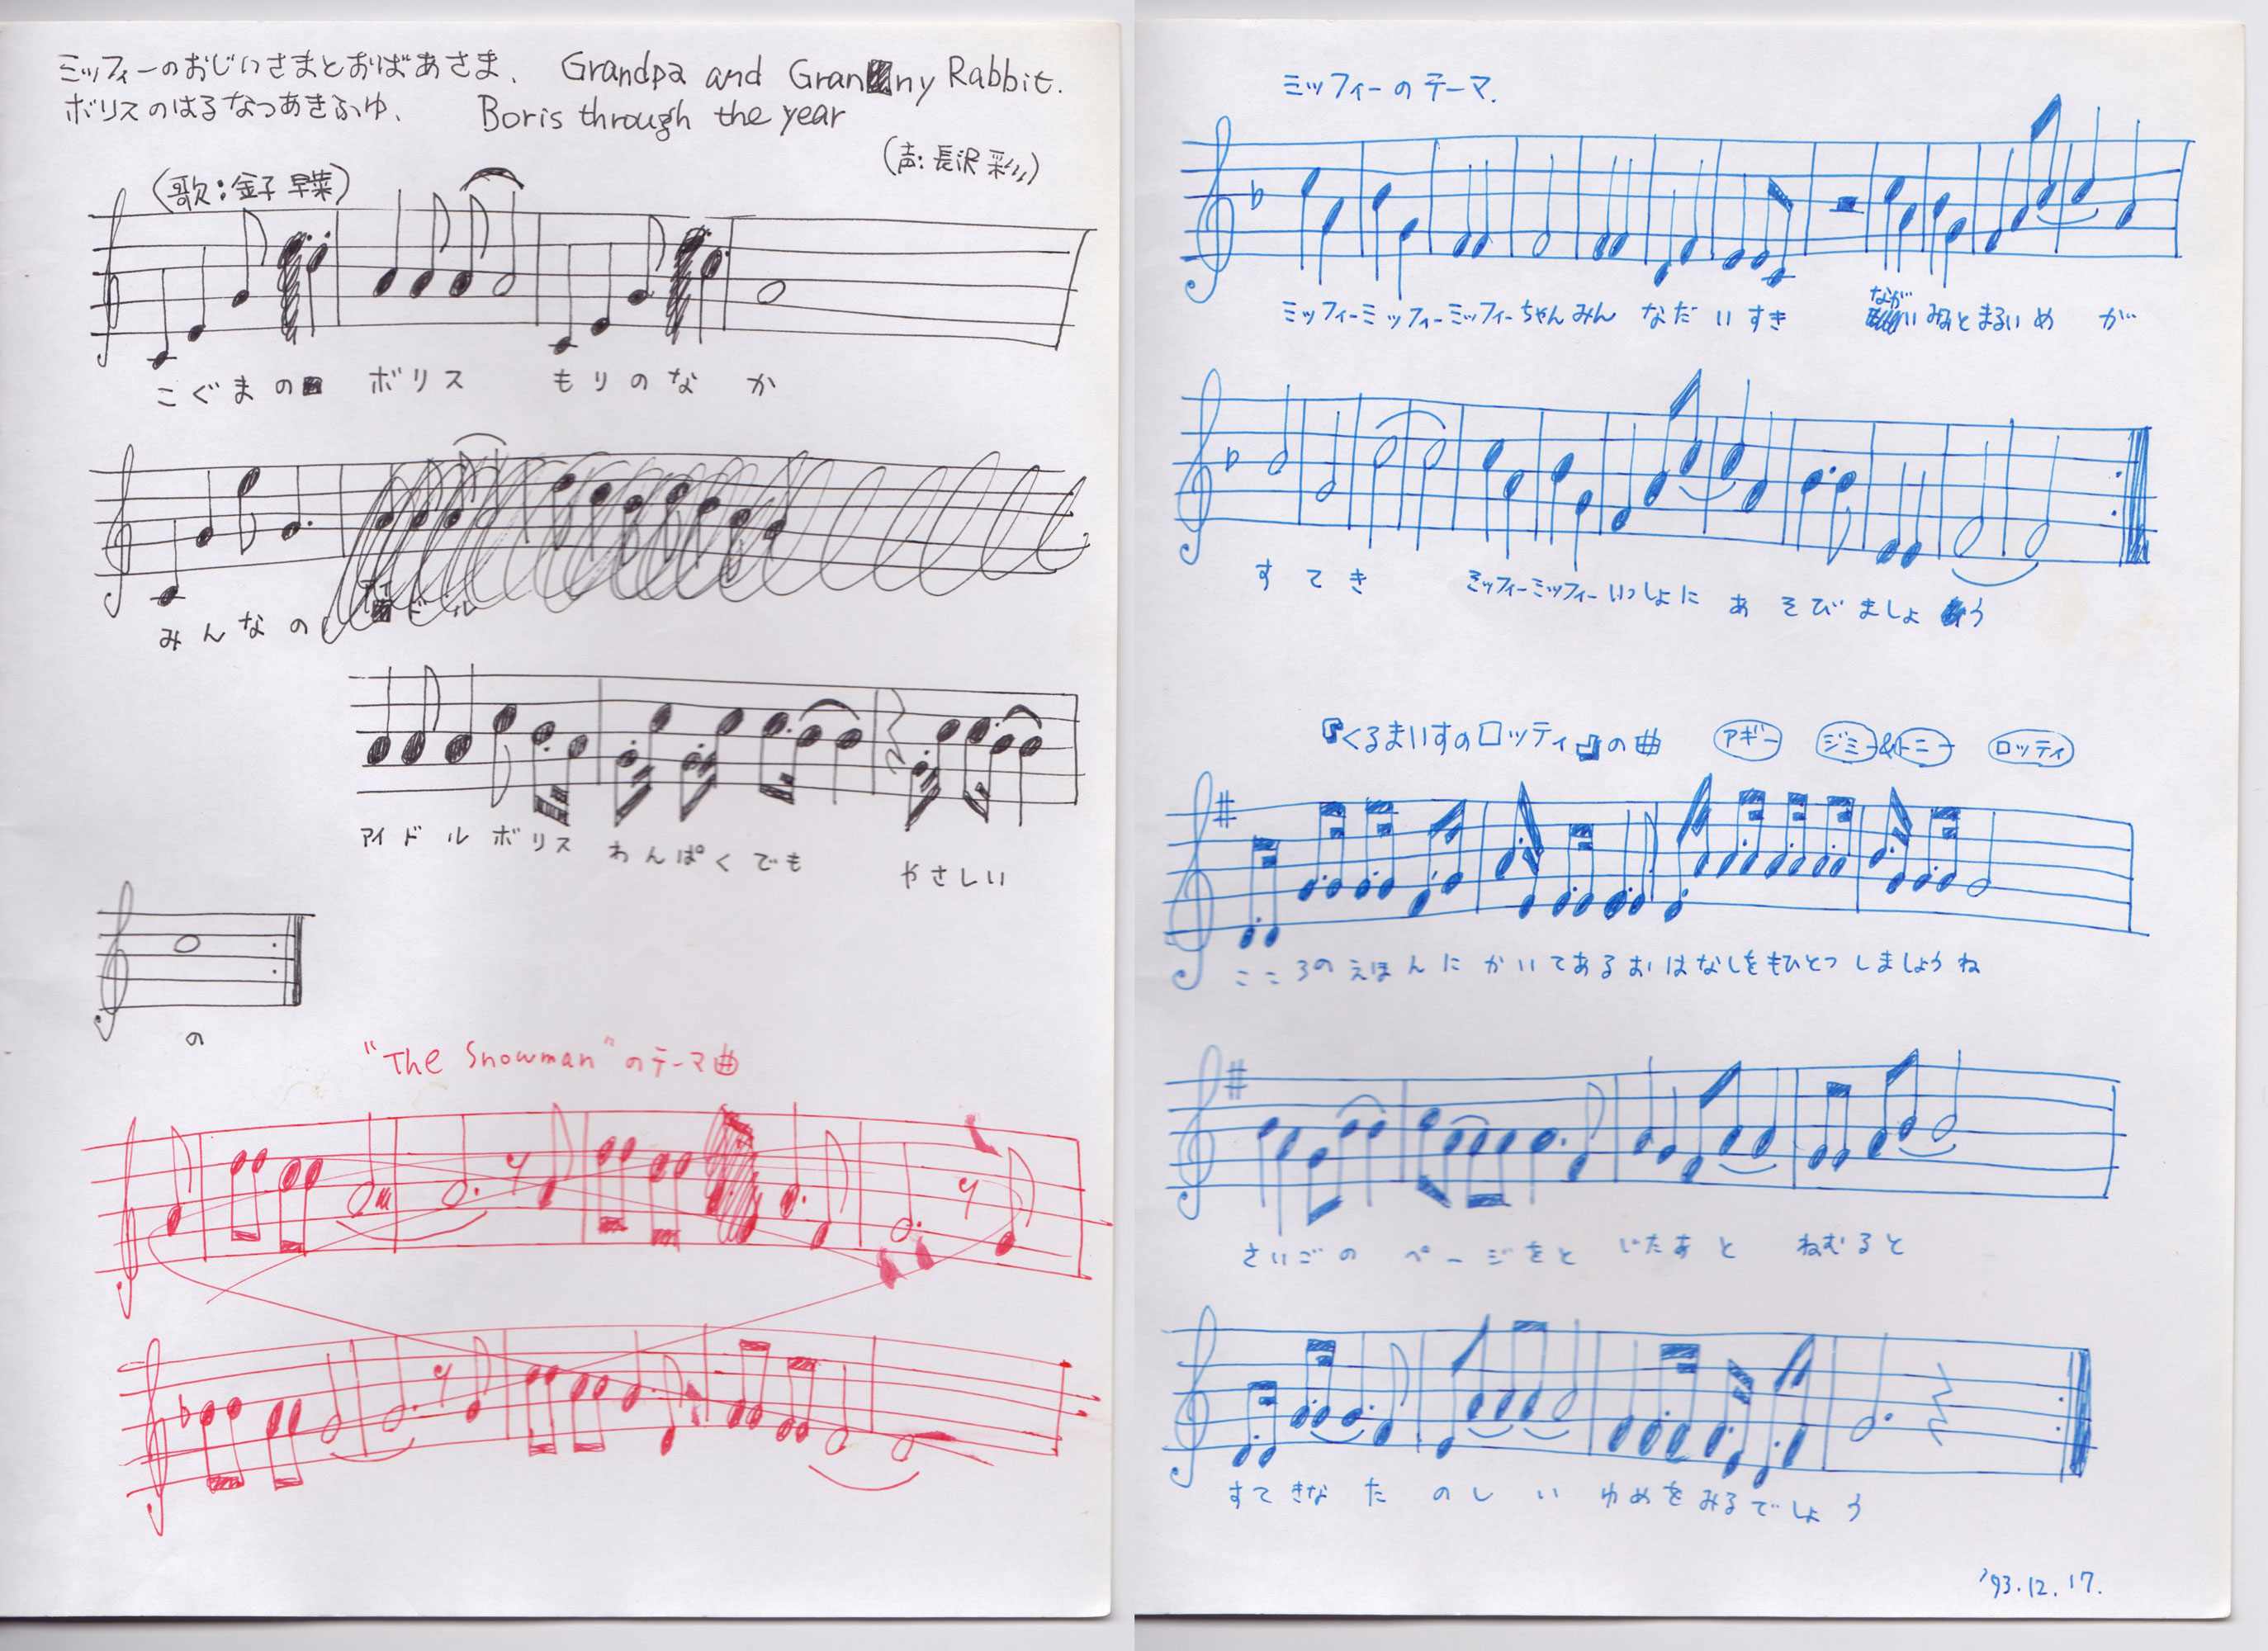 ミッフィーのおじいさまとおばあさま、 Grandpa and Granny Rabbit.
ボリスのはるなつあきふゆ、 Boris through the year
(声:長沢 彩)
(歌:金子 早菜)
こぐまの ボリス もりのな か
みんなの
アイドル ボリス わんぱくでも やさしい
の
"The Snowman"のテーマ曲
ミッフィーのテーマ.
ミッフィーミッフィーミッフィーちゃんみん なだいすき ながいみみとまるいめ が
すてき ミッフィーミッフィーいっしょに あそびましょう
『くるまいすのロッティ』の曲 アギー ジミー&トニー ロッティ
こころのえほんに かいてあるおはなしをもひとつしましょうね
さいごの ページをと じたあと ねむると
すてきな たのしい ゆめをみるでしょう
'93.12.17.